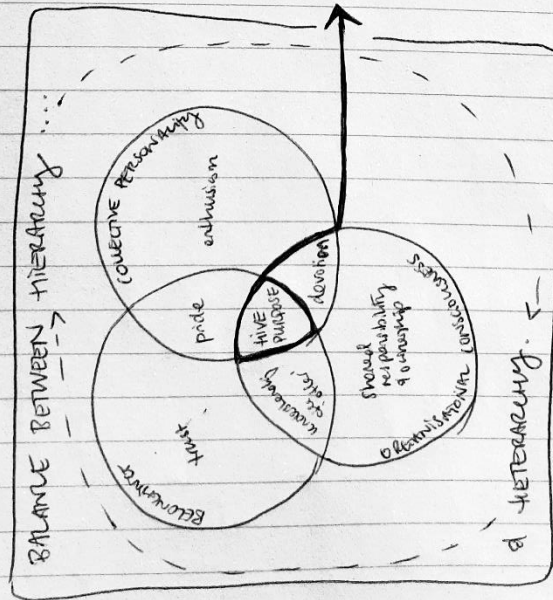 BALANCE BETWEEN HIERARCHY ....
COLLECTIVE PERSONALITY
enthusiasm
pride
HIVE
PURPOSE
devotion
BELONGING
trust
understanding
other'
shared
responsibility
& ownership
ORGANISATIONAL CONSCIOUSNESS
& HETERARCHY.